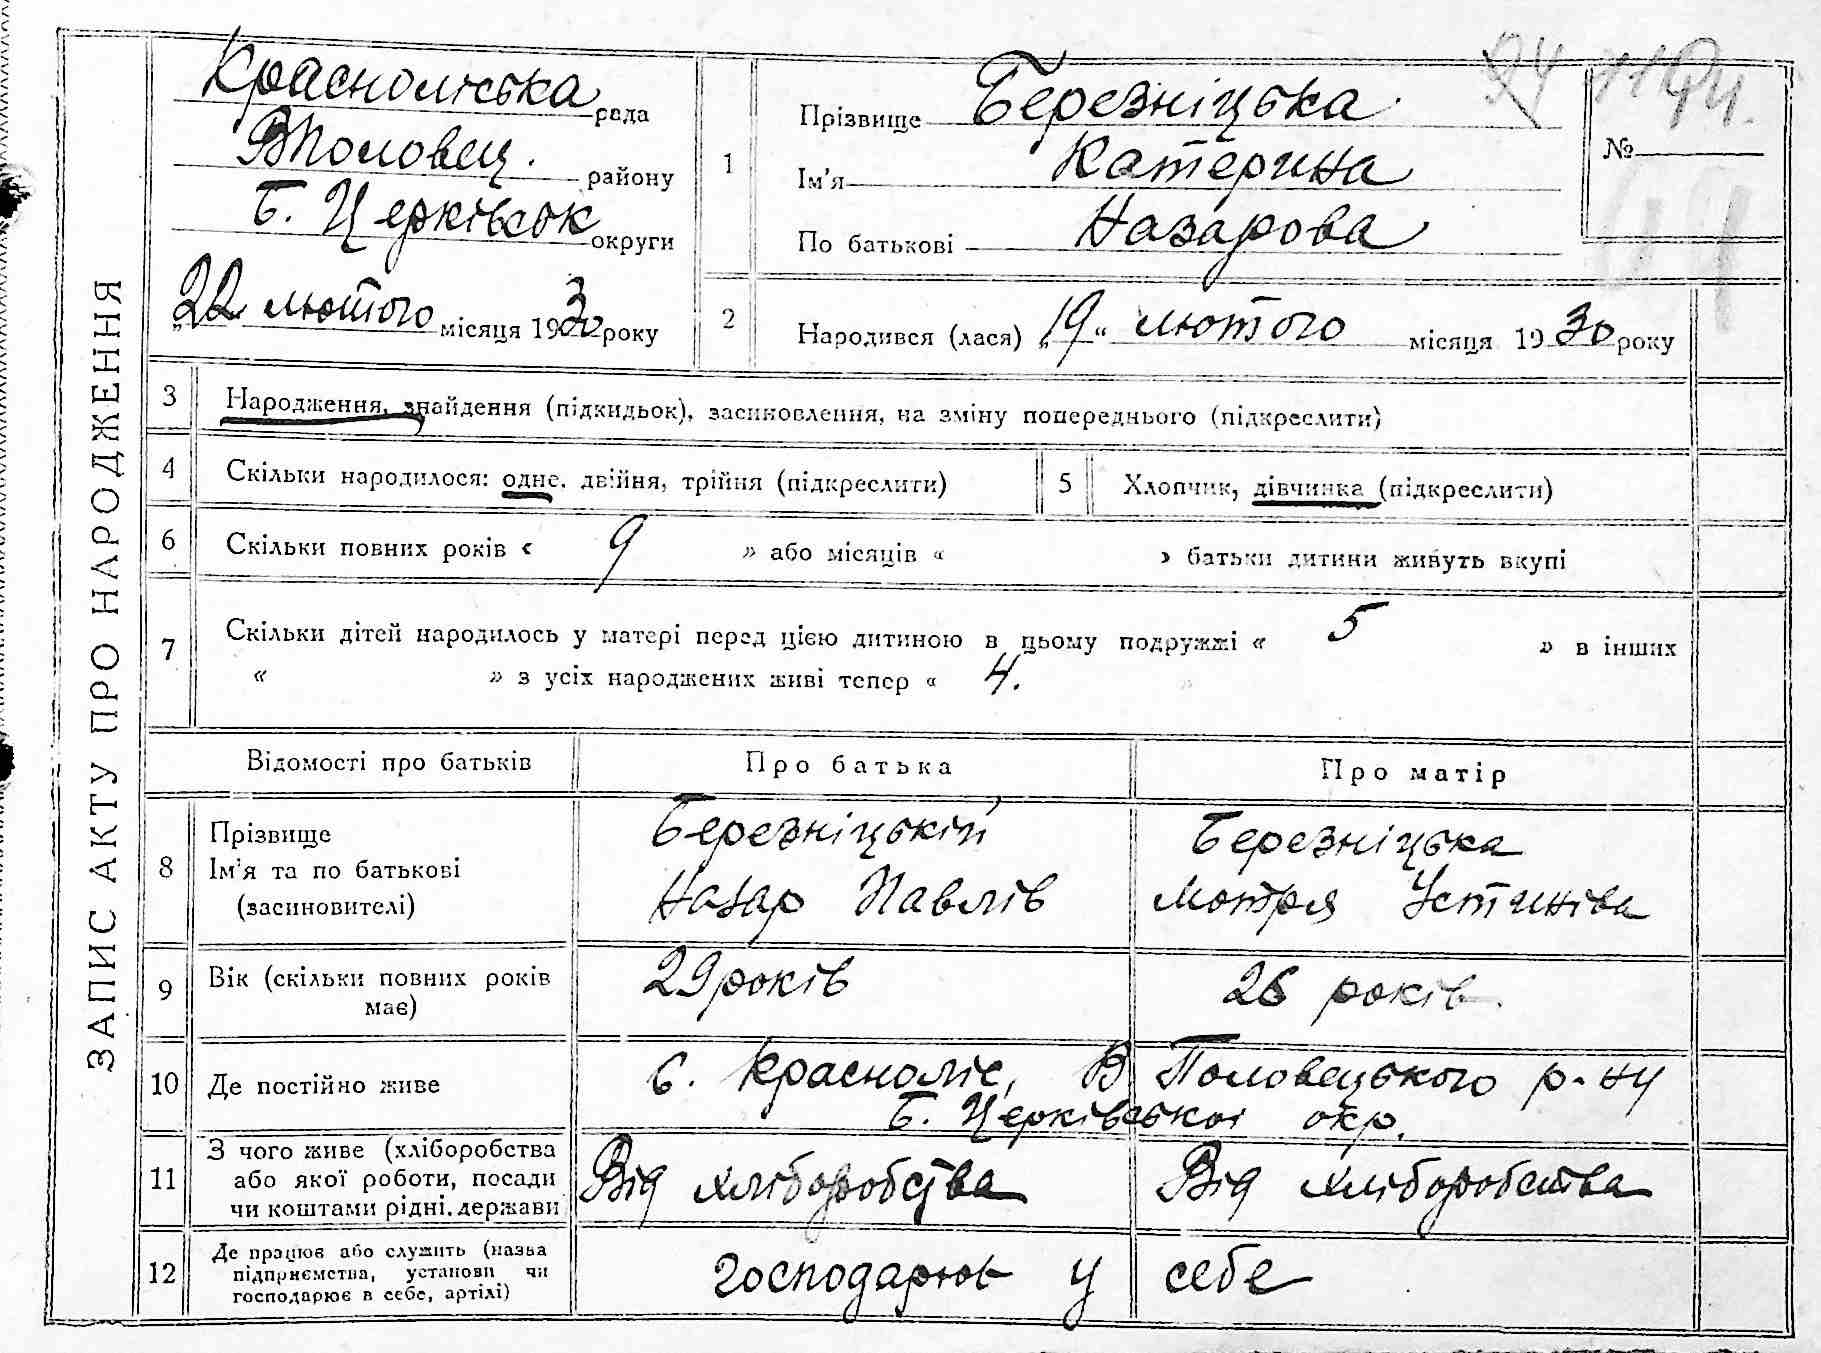 ЗАПИС АКТУ ПРО НАРОДЖЕННЯ
Краснолиська рада
ВПоловец. району
Б. Церківськ округи
„22 лютого місяця 1930 року
1
Прізвище Березніцька
Ім'я Катерина
По батькові Назарова
№
2 Народився (лася) „19“ лютого місяця 1930 року
3 Народження, знайдення (підкидьок), засиновлення, на зміну попереднього (підкреслити)
4 Скільки народилося: одне, двійня, трійня (підкреслити)
5 Хлопчик, дівчинка (підкреслити)
6 Скільки повних років « 9 » або місяців « » батьки дитини живуть вкупі
7 Скільки дітей народилось у матері перед цією дитиною в цьому подружжі « 5 » в інших
« » з усіх народжених живі тепер « 4. »
Відомості про батьків Про батька Про матір
8 Прізвище Березніцькій Березніцька
Ім'я та по батькові Назар Павлів Мотря Устинівa
(засиновителі)
9 Вік (скільки повних років має) 29 років 26 років
10 Де постійно живе с. Краснолис, В Половецького р-ну
Б. Церківської окр.
11 З чого живе (хліборобства Від хліборобства Від хліборобства
або якої роботи, посади
чи коштами рідні, держави
12 Де працює або служить (назва господарює у себе
підприємства, установи чи
господарює в себе, артілі)